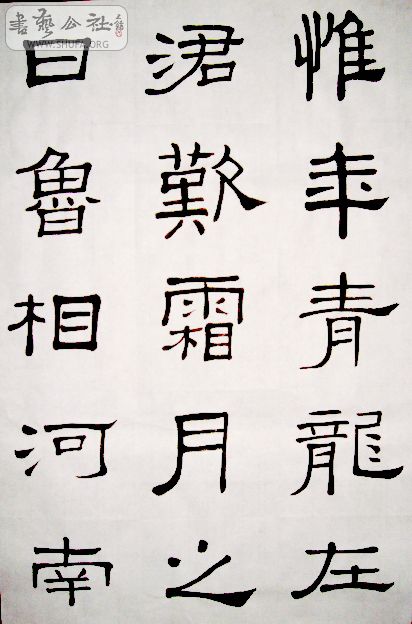 惟年青龍在
涒歎霜月之
日魯相河南
書藝公社
WWW.SHUFA.ORG